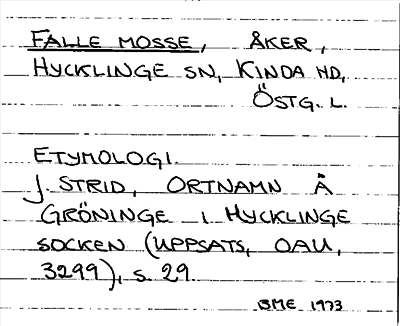 FALLE MOSSE, ÅKER,
HYCKLINGE SN, KINDA HD,
ÖSTG. L.
ETYMOLOGI.
J. STRID, ORTNAMN Å
GRÖNINGE I HYCKLINGE
SOCKEN (UPPSATS, OAU,
3299), S. 29.
BME 1973